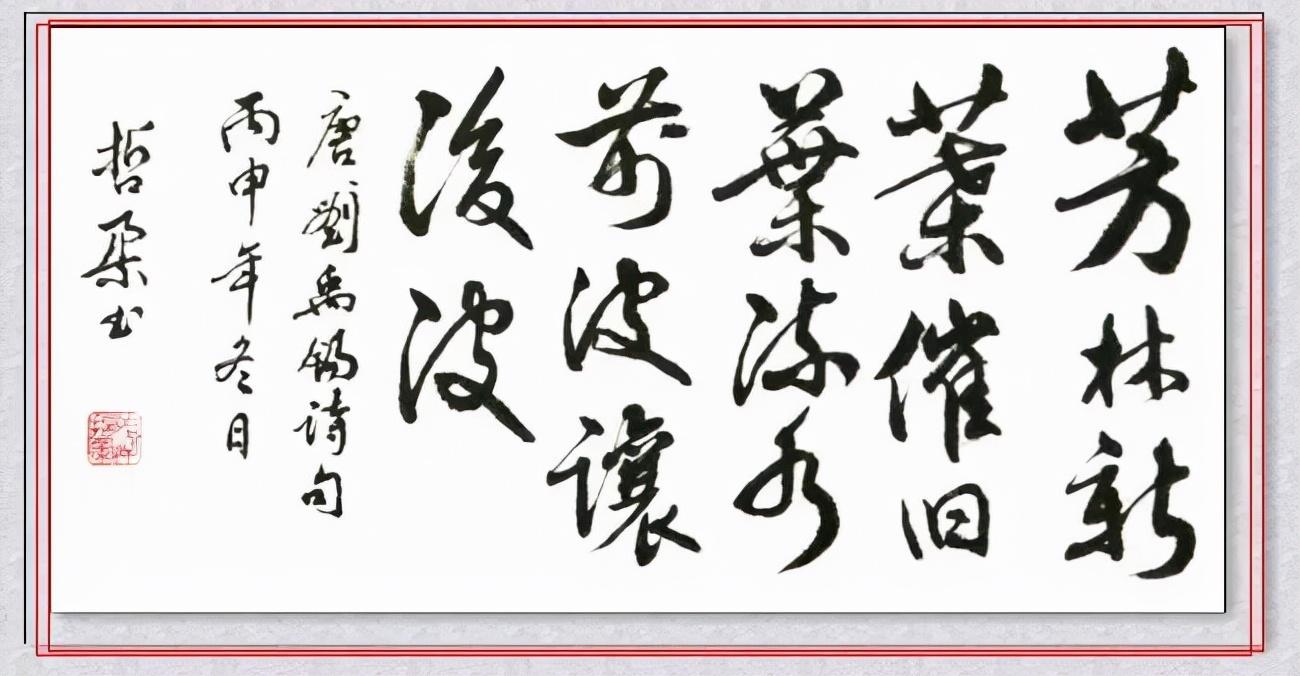 芳林新
葉催旧
葉流水
前波讓
後波
唐劉禹錫詩句
丙申年冬日
哲朵书